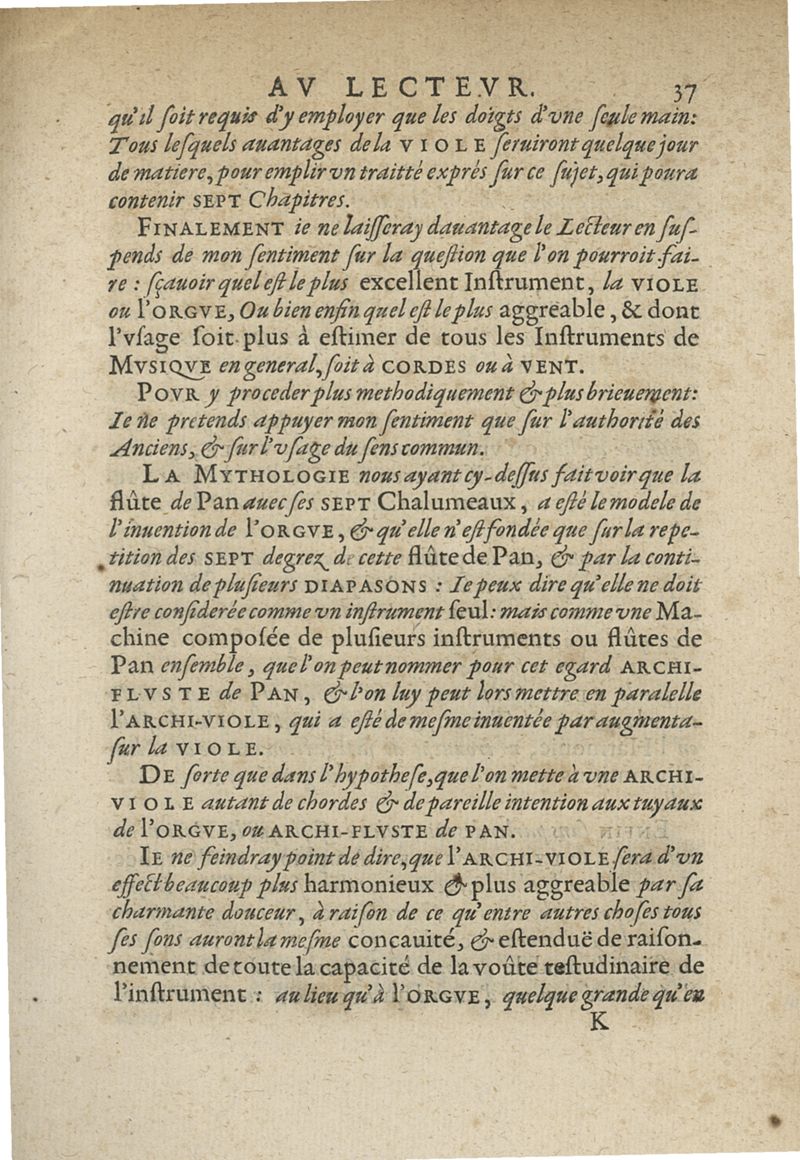 AV LECTEVR. 37
qu'il ſoit requis d'y employer que les doigts d'vne ſeule main:
Tous leſquels auantages de la VIOLE ſeruiront quelque jour
de matiere, pour emplir vn traitté exprés ſur ce ſujet, qui poura
contenir SEPT Chapitres.
FINALEMENT ie ne laiſſeray dauantage le Lecteur en ſuſ-
pends de mon ſentiment ſur la queſtion que l'on pourroit fai-
re : ſçauoir quel eſt le plus excellent Inſtrument, la VIOLE
ou l'ORGVE, Ou bien enfin quel eſt le plus aggreable, & dont
l'vſage ſoit plus à eſtimer de tous les Inſtruments de
MVSIQVE en general, ſoit à CORDES ou à VENT.
POVR y proceder plus methodiquement & plus brieuement:
Ie ne pretends appuyer mon ſentiment que ſur l'authorité des
Anciens, & ſur l'vſage du ſens commun.
LA MYTHOLOGIE nous ayant cy-deſſus fait voir que la
flûte de Pan auec ſes SEPT Chalumeaux, a eſté le modele de
l'inuention de l'ORGVE, & qu'elle n'eſt fondée que ſur la repe-
tition des SEPT degrez de cette flûte de Pan, & par la conti-
nuation de pluſieurs DIAPASONS : Ie peux dire qu'elle ne doit
eſtre conſiderée comme vn inſtrument ſeul: mais comme vne Ma-
chine compoſée de pluſieurs inſtruments ou flûtes de
Pan enſemble, que l'on peut nommer pour cet egard ARCHI-
FLVSTE de PAN, & l'on luy peut lors mettre en paralelle
l'ARCHI-VIOLE, qui a eſté de meſme inuentée par augmenta-
ſur la VIOLE.
DE ſorte que dans l'hypotheſe, que l'on mette à vne ARCHI-
VIOLE autant de chordes & de pareille intention aux tuyaux
de l'ORGVE, ou ARCHI-FLVSTE de PAN.
IE ne feindray point de dire, que l'ARCHI-VIOLE ſera d'vn
effect beaucoup plus harmonieux & plus aggreable par ſa
charmante douceur, à raiſon de ce qu'entre autres choſes tous
ſes ſons auront la meſme concauité, & eſtenduë de raiſon-
nement de toute la capacité de la voûte teſtudinaire de
l'inſtrument : au lieu qu'à l'ORGVE, quelque grande qu'en
K